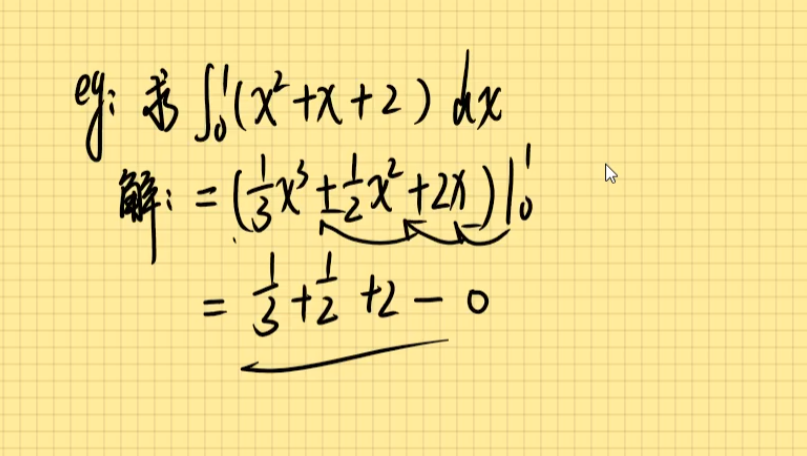 eg: 求 ∫₀¹(x²+x+2)dx
解: = (1/3x³+1/2x²+2x)|₀¹
= 1/3+1/2+2-0